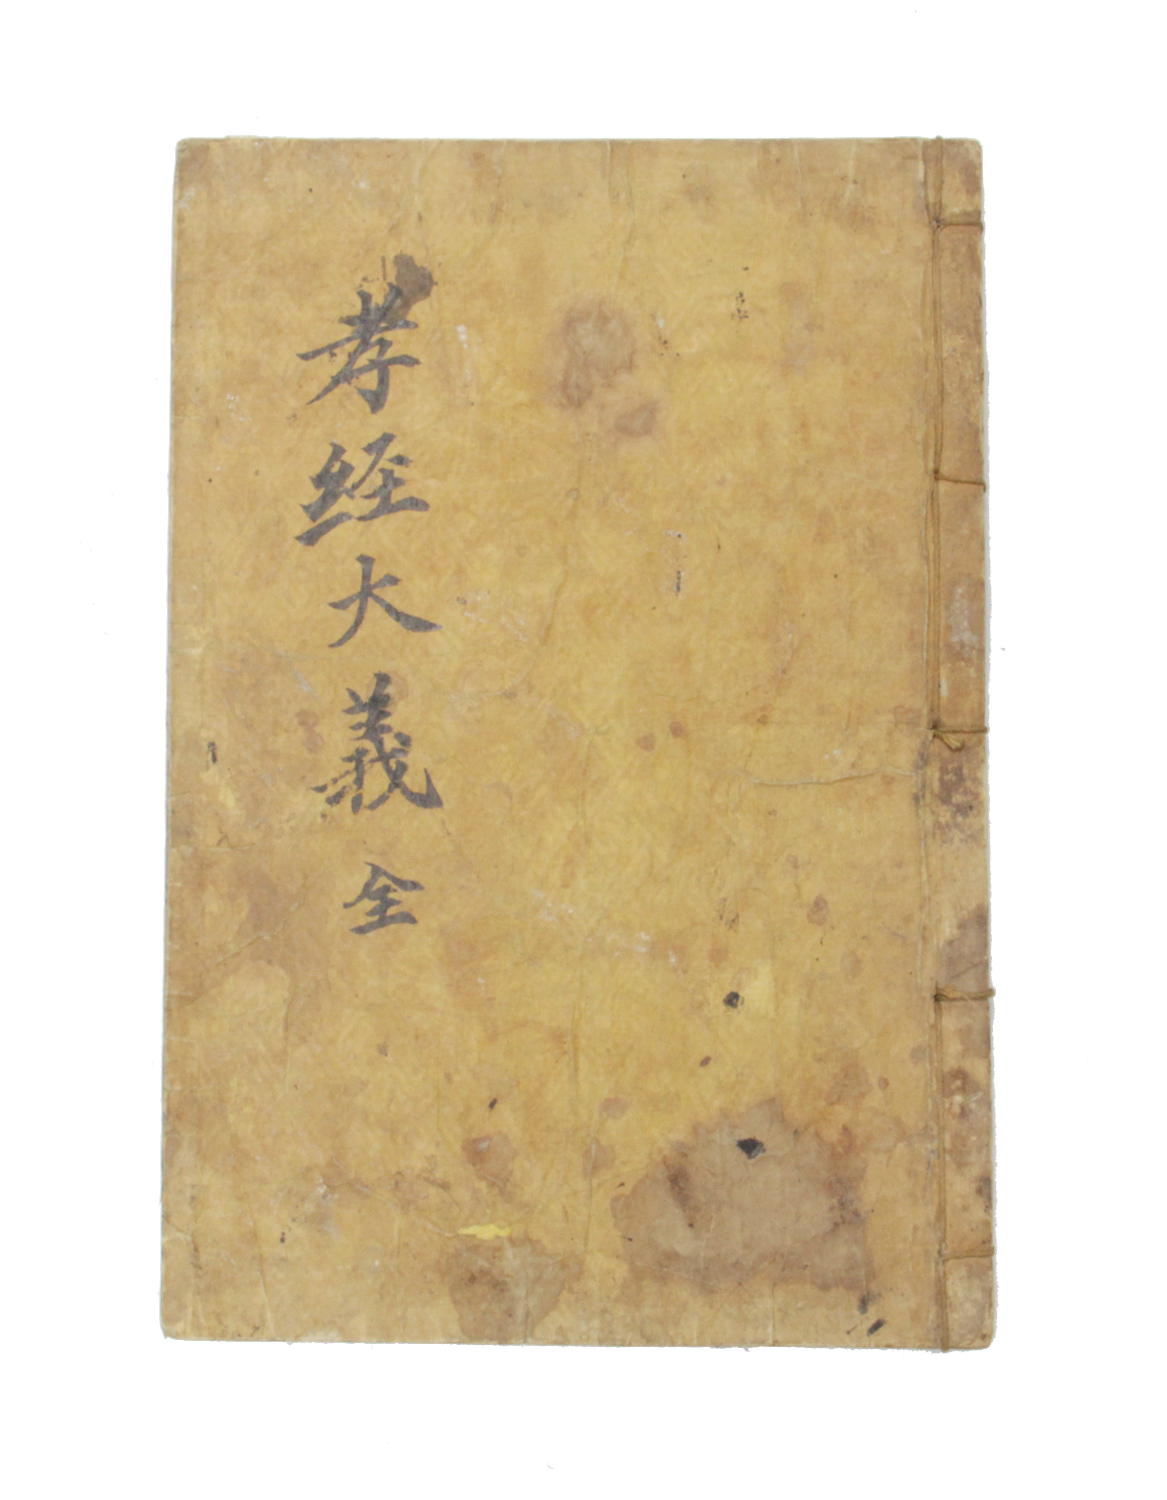 孝經大義 全